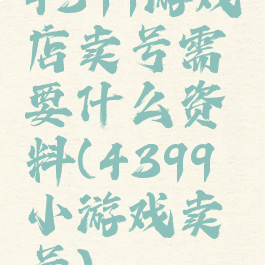 4399游戏
店卖号需
要什么资
料(4399
小游戏卖
号)